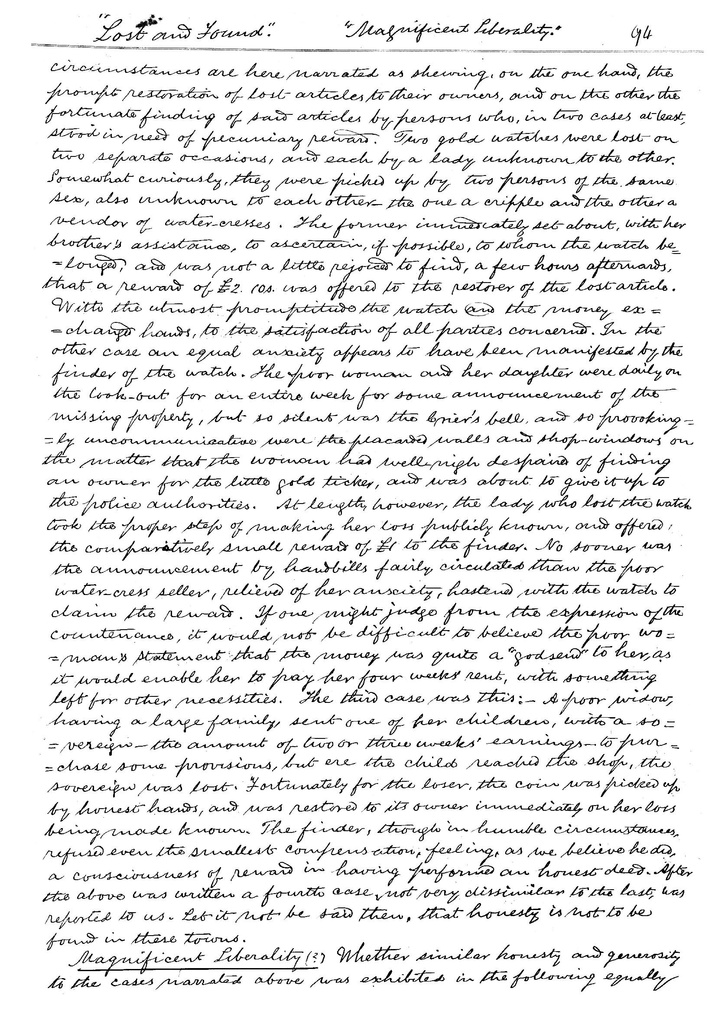 "Lost and Found". "Magnificent Liberality." 94
circumstances are here narrated as shewing, on the one hand, the
prompt restoration of lost articles to their owners, and on the other the
fortunate finding of said articles by persons who, in two cases at least,
stood in need of pecuniary reward. Two gold watches were lost on
two separate occasions, and each by a lady unknown to the other.
Somewhat curiously, they were picked up by two persons of the same
sex, also unknown to each other - the one a cripple and the other a
vendor of water-cresses. The former immediately set about, with her
brother's assistance, to ascertain, if possible, to whom the watch be=
=longed, and was not a little rejoiced to find, a few hours afterwards,
that a reward of £2. 10s. was offered to the restorer of the lost article.
With the utmost promptitude the watch and the money ex=
=changed hands, to the satisfaction of all parties concerned. In the
other case an equal anxiety appears to have been manifested by the
finder of the watch. The poor woman and her daughter were daily on
the look-out for an entire week for some announcement of the
missing property, but so silent was the Crier's bell, and so provoking=
=ly uncommunicative were the placarded walls and shop-windows on
the matter that the woman had well-nigh despaired of finding
an owner for the little gold ticker, and was about to give it up to
the police authorities. At length, however, the lady who lost the watch
took the proper step of making her loss publicly known, and offered
the comparatively small reward of £1 to the finder. No sooner was
the announcement by handbills fairly circulated than the poor
water-cress seller, relieved of her anxiety, hastened with the watch to
claim the reward. If one might judge from the expression of the
countenance, it would not be difficult to believe the poor wo=
=man's statement that the money was quite a "godsend" to her, as
it would enable her to pay her four weeks' rent, with something
left for other necessities. The third case was this:- A poor widow,
having a large family, sent one of her children, with a so=
=vereign - the amount of two or three weeks' earnings - to pur=
=chase some provisions, but ere the child reached the shop, the
sovereign was lost. Fortunately for the loser, the coin was picked up
by honest hands, and was restored to its owner immediately on her loss
being made known. The finder, though in humble circumstances,
refused even the smallest compensation, feeling, as we believe he did,
a consciousness of reward in having performed an honest deed. After
the above was written a fourth case, not very dissimilar to the last, was
reported to us. Let it not be said then, that honesty is not to be
found in these towns.
Magnificent Liberality (?) Whether similar honesty and generosity
to the cases narrated above was exhibited in the following equally